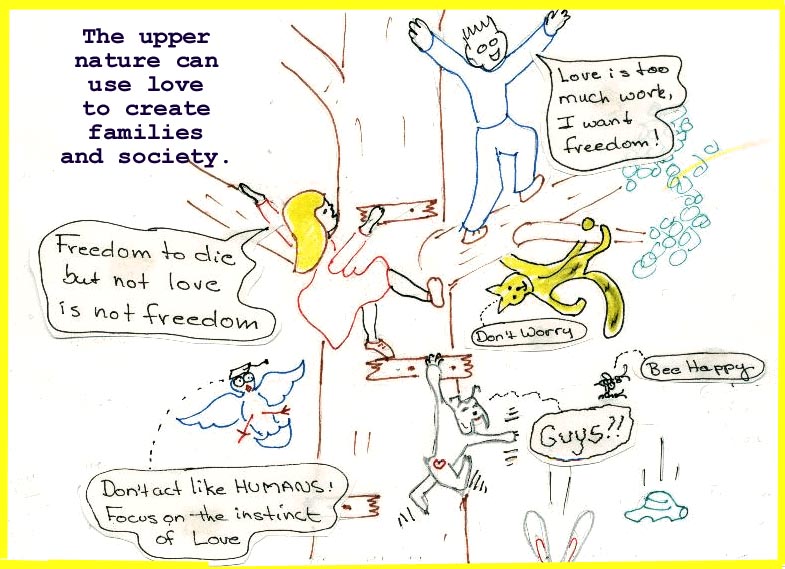 The upper
nature can
use love
to create
families
and society.
Love is too
much work,
I want
freedom!
Freedom to die
but not love
is not freedom
Don't Worry
Bee Happy
Guys!!
Don't act like HUMANS!
Focus on the instinct
of Love